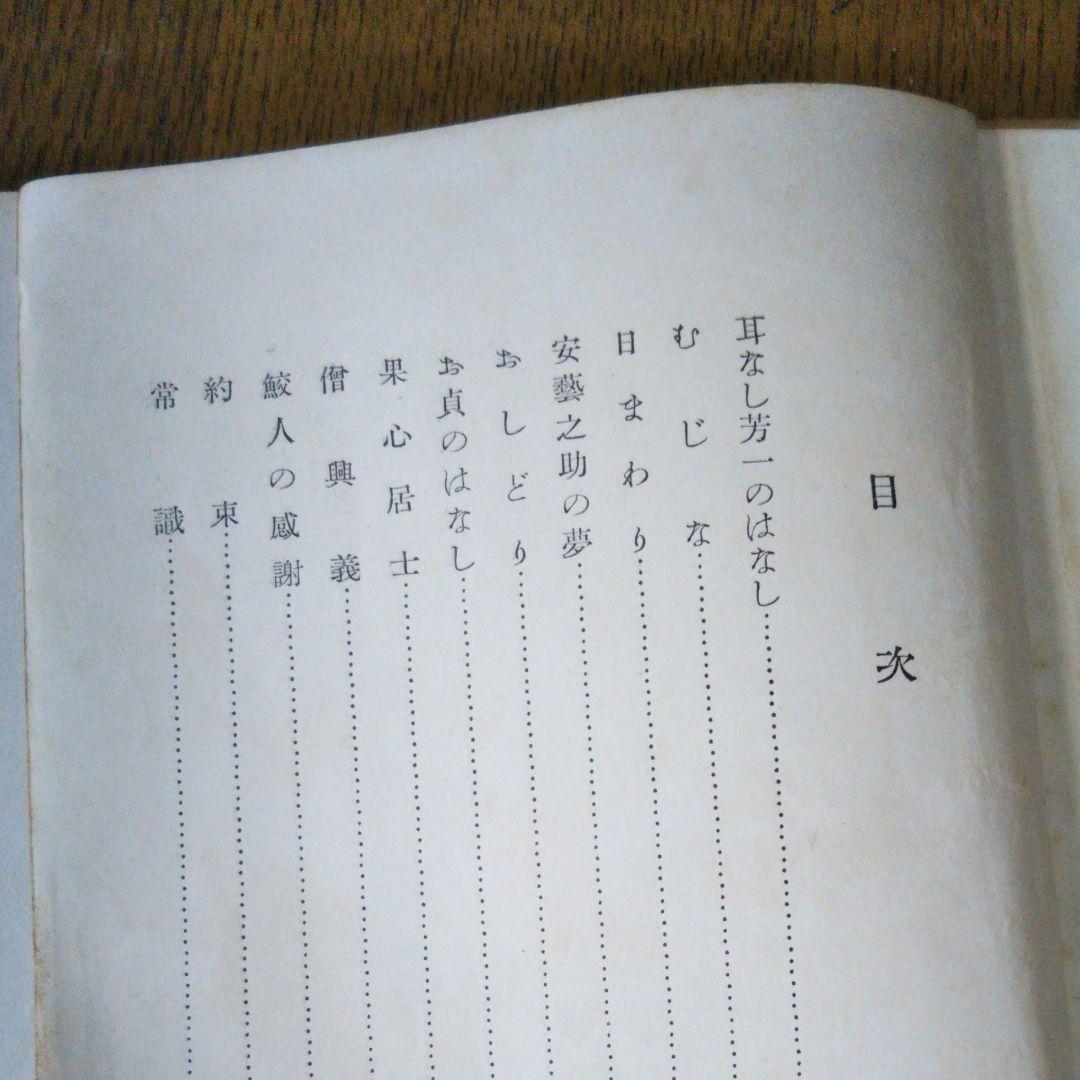 目次
耳なし芳一のはなし
むじな
日まわり
安藝之助の夢
おしどり
お貞のはなし
果心居士
僧興義
鮫人の感謝
約束
常識